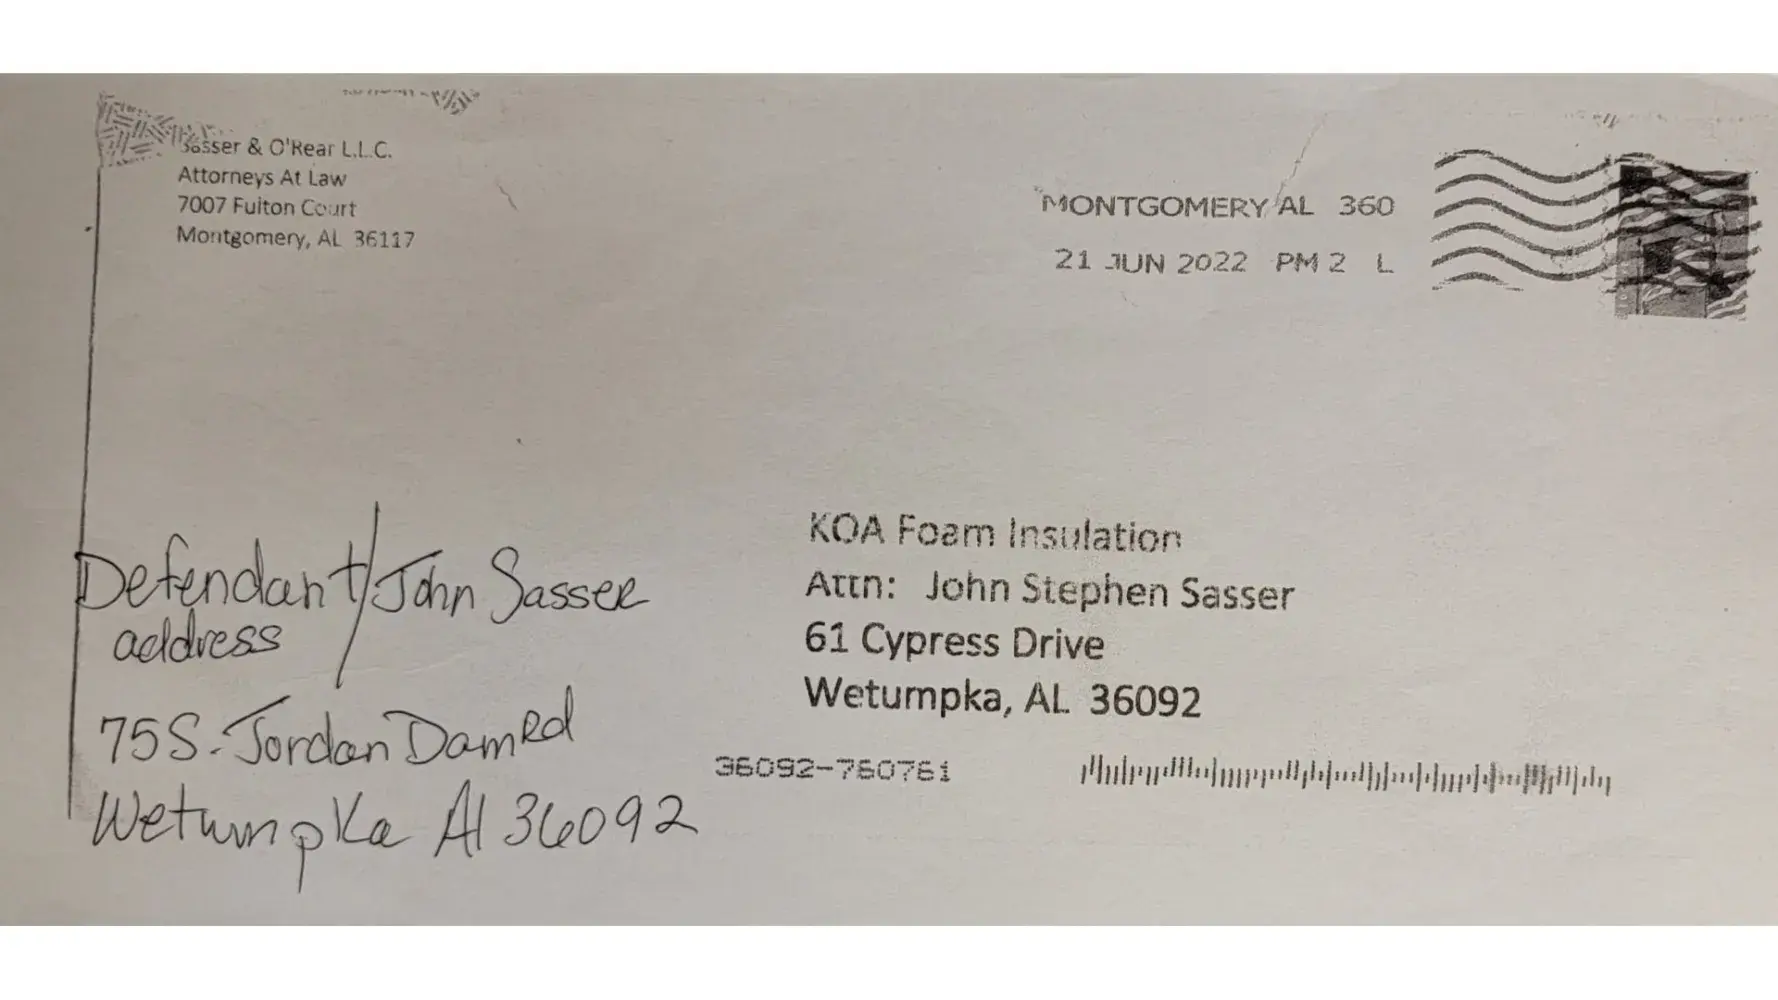 Sasser & O'Rear L.L.C.
Attorneys At Law
7007 Fulton Court
Montgomery, AL 36117
MONTGOMERY AL 360
21 JUN 2022 PM 2 L
KOA Foam Insulation
Attn: John Stephen Sasser
61 Cypress Drive
Wetumpka, AL 36092
36092-760761
Defendant/John Sasser
address
75 S. Jordan Dam Rd
Wetumpka Al 36092